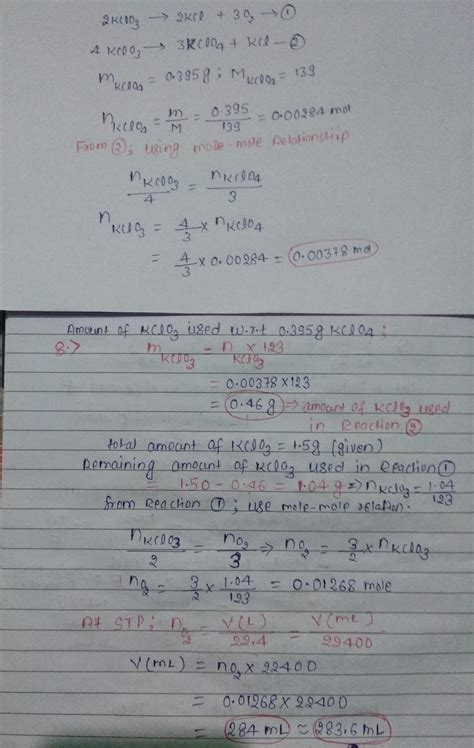 2KClO₃ → 2KCl + 3O₂ → ①
4 KClO₃ → 3KClO₄ + KCl - ②
m KClO₄ = 0.395g ; M KClO₄ = 139
n KClO₄ = m/M = 0.395/139 = 0.00284 mol
From ②; using mole-mole Relationship
n KClO₃/4 = n KClO₄/3
n KClO₃ = 4/3 × n KClO₄
= 4/3 × 0.00284 = 0.00378 mol
Amount of KClO₃ used w.r.t 0.395g KClO₄ ;
8.> m KClO₃ = n KClO₃ × 123
= 0.00378 × 123
= 0.46 g ⇒ amount of KClO₃ used
in Reaction ②
total amount of KClO₃ = 1.5g (given)
Remaining amount of KClO₃ used in Reaction ①
= 1.50 - 0.46 = 1.04 g ⇒ n KClO₃ = 1.04/123
from Reaction ① ; use mole-mole relation.
n KClO₃/2 = nO₂/3 ⇒ nO₂ = 3/2 × n KClO₃
nO₂ = 3/2 × 1.04/123 = 0.01268 mole
At STP ; nO₂ = V(L)/22.4 = V(mL)/22400
V(mL) = nO₂ × 22400
= 0.01268 × 22400
= 284 mL ≈ 283.6 mL